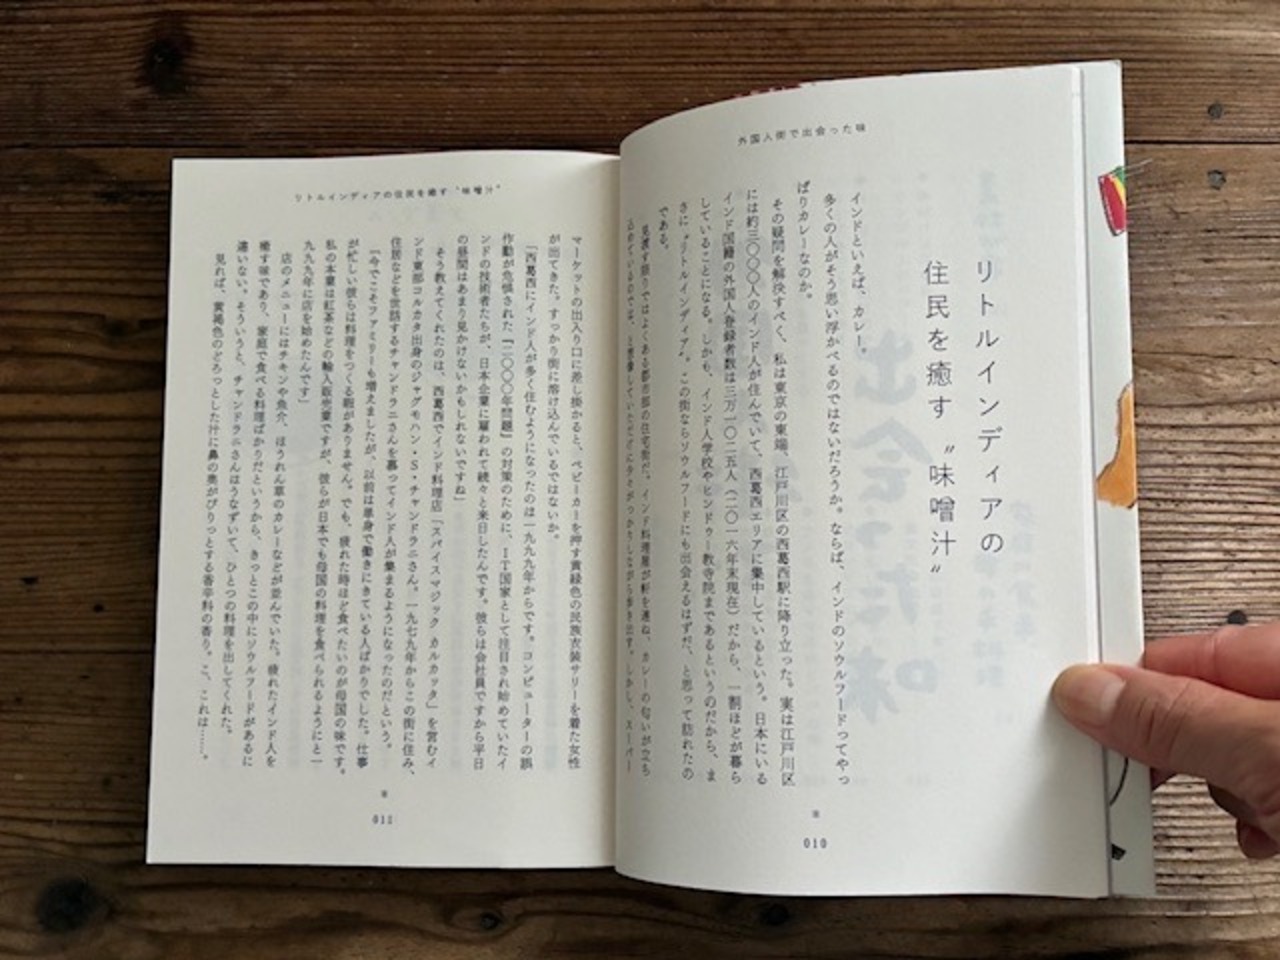 外国人街で出会った味
リトルインディアの
住民を癒す〝味噌汁〟
インドといえば、カレー。
多くの人がそう思い浮かべるのではないだろうか。ならば、インドのソウルフードってやっ
ぱりカレーなのか。
その疑問を解決すべく、私は東京の東端、江戸川区の西葛西駅に降り立った。実は江戸川区
には約三〇〇〇人のインド人が住んでいて、西葛西エリアに集中しているという。日本にいる
インド国籍の外国人登録者数は三万一〇二五人（二〇一六年末現在）だから、一割ほどが暮ら
していることになる。しかも、インド人学校やヒンドゥー教寺院まであるというのだから、ま
さに〝リトルインディア〟。この街ならソウルフードにも出会えるはずだ、と思って訪れたの
である。
見渡す限りではよくある都市部の住宅街だ。インド料理屋が軒を連ね、カレーの匂いが立ち
込めているのでは、と想像していただけに少々がっかりしながら歩き出す。しかし、スーパー
010
リトルインディアの住民を癒す〝味噌汁〟
マーケットの出入り口に差し掛かると、ベビーカーを押す黄緑色の民族衣装サリーを着た女性
が出てきた。すっかり街に溶け込んでいるではないか。
「西葛西にインド人が多く住むようになったのは一九九九年からです。コンピューターの誤
作動が危惧された『二〇〇〇年問題』の対策のために、ＩＴ国家として注目され始めていたイ
ンドの技術者たちが、日本企業に雇われて続々と来日したんです。彼らは会社員ですから平日
の昼間はあまり見かけないかもしれないですね」
そう教えてくれたのは、西葛西でインド料理店「スパイスマジック カルカッタ」を営むイ
ンド東部コルカタ出身のジャグモハン・Ｓ・チャンドラニさん。一九七九年からこの街に住み、
住居などを世話するチャンドラニさんを慕ってインド人が集まるようになったのだという。
「今でこそファミリーも増えましたが、以前は単身で働きにきている人ばかりでした。仕事
が忙しい彼らは料理をつくる暇がありません。でも、疲れた時ほど食べたいのが母国の味です。
私の本業は紅茶などの輸入販売業ですが、彼らが日本でも母国の料理を食べられるようにと一
九九九年に店を始めたんです」
店のメニューにはチキンや魚介、ほうれん草のカレーなどが並んでいた。疲れたインド人を
癒す味であり、家庭で食べる料理ばかりだというから、きっとこの中にソウルフードがあるに
違いない。そういうと、チャンドラニさんはうなずいて、ひとつの料理を出してくれた。
見れば、黄褐色のどろっとした汁に鼻の奥がぴりっとする香辛料の香り。こ、これは……。
011